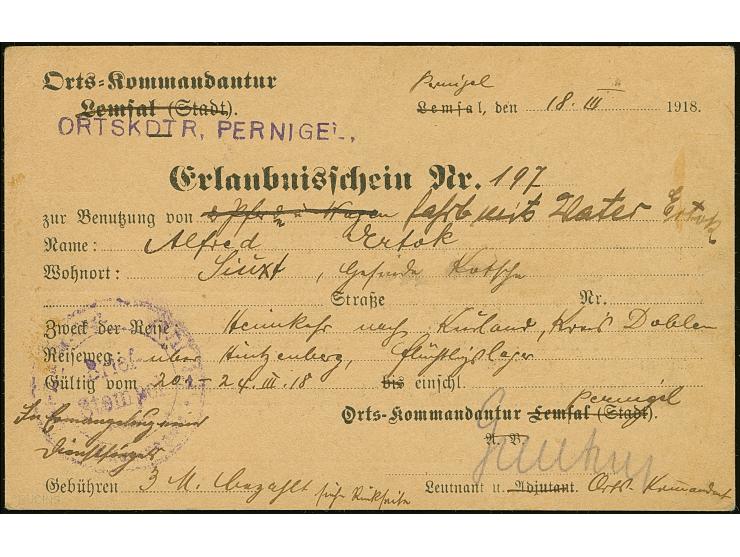 Orts-Kommandantur
Lemsal (Stadt).
ORTSKDTR, PERNIGEL,
Pernigel
Lemsal, den 18. III 1918.
Erlaubnisschein Nr. 197
zur Benutzung von Pferd u Wagen fährt mit Vater Ertok
Name: Alfred Ertok
Wohnort: Siuxt, Gesinde Kotsche
Straße Nr.
Zweck der Reise: Heimkehr nach Kurland, Kreis Doblen
Reiseweg: über Hinzenberg, Flüchtlingslager
Gültig vom 20. - 24. III. 18 bis einschl.
Brief
Stempel
In Ermangelung eines
Dienstsiegels
Pernigel
Orts-Kommandantur Lemsal (Stadt).
A. B.
Gebühren 3 M. bezahlt siehe Rückseite
Leutnant u. Adjutant. Orts-Kommandant